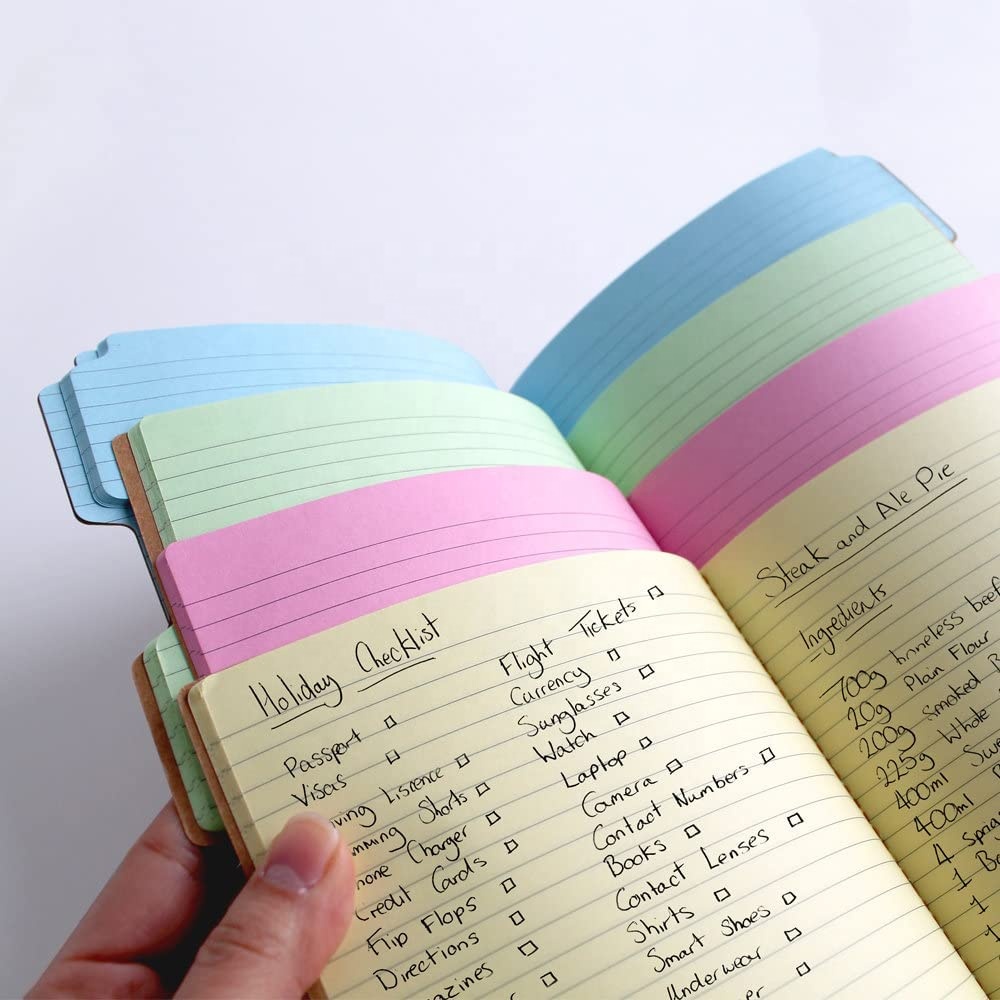 Holiday Checklist
Passport
Visas
Liscence
Shorts
Charger
Credit Cards
Flip Flops
Directions
Flight Tickets
Currency
Sunglasses
Watch
Laptop
Camera
Contact Numbers
Books
Contact Lenses
Shirts
Smart Shoes
Underwear
Steak and Ale Pie
Ingredients
700g boneless beef
20g Plain Flour
200g Smoked
225g Whole
400ml
400ml
4
1
1
1